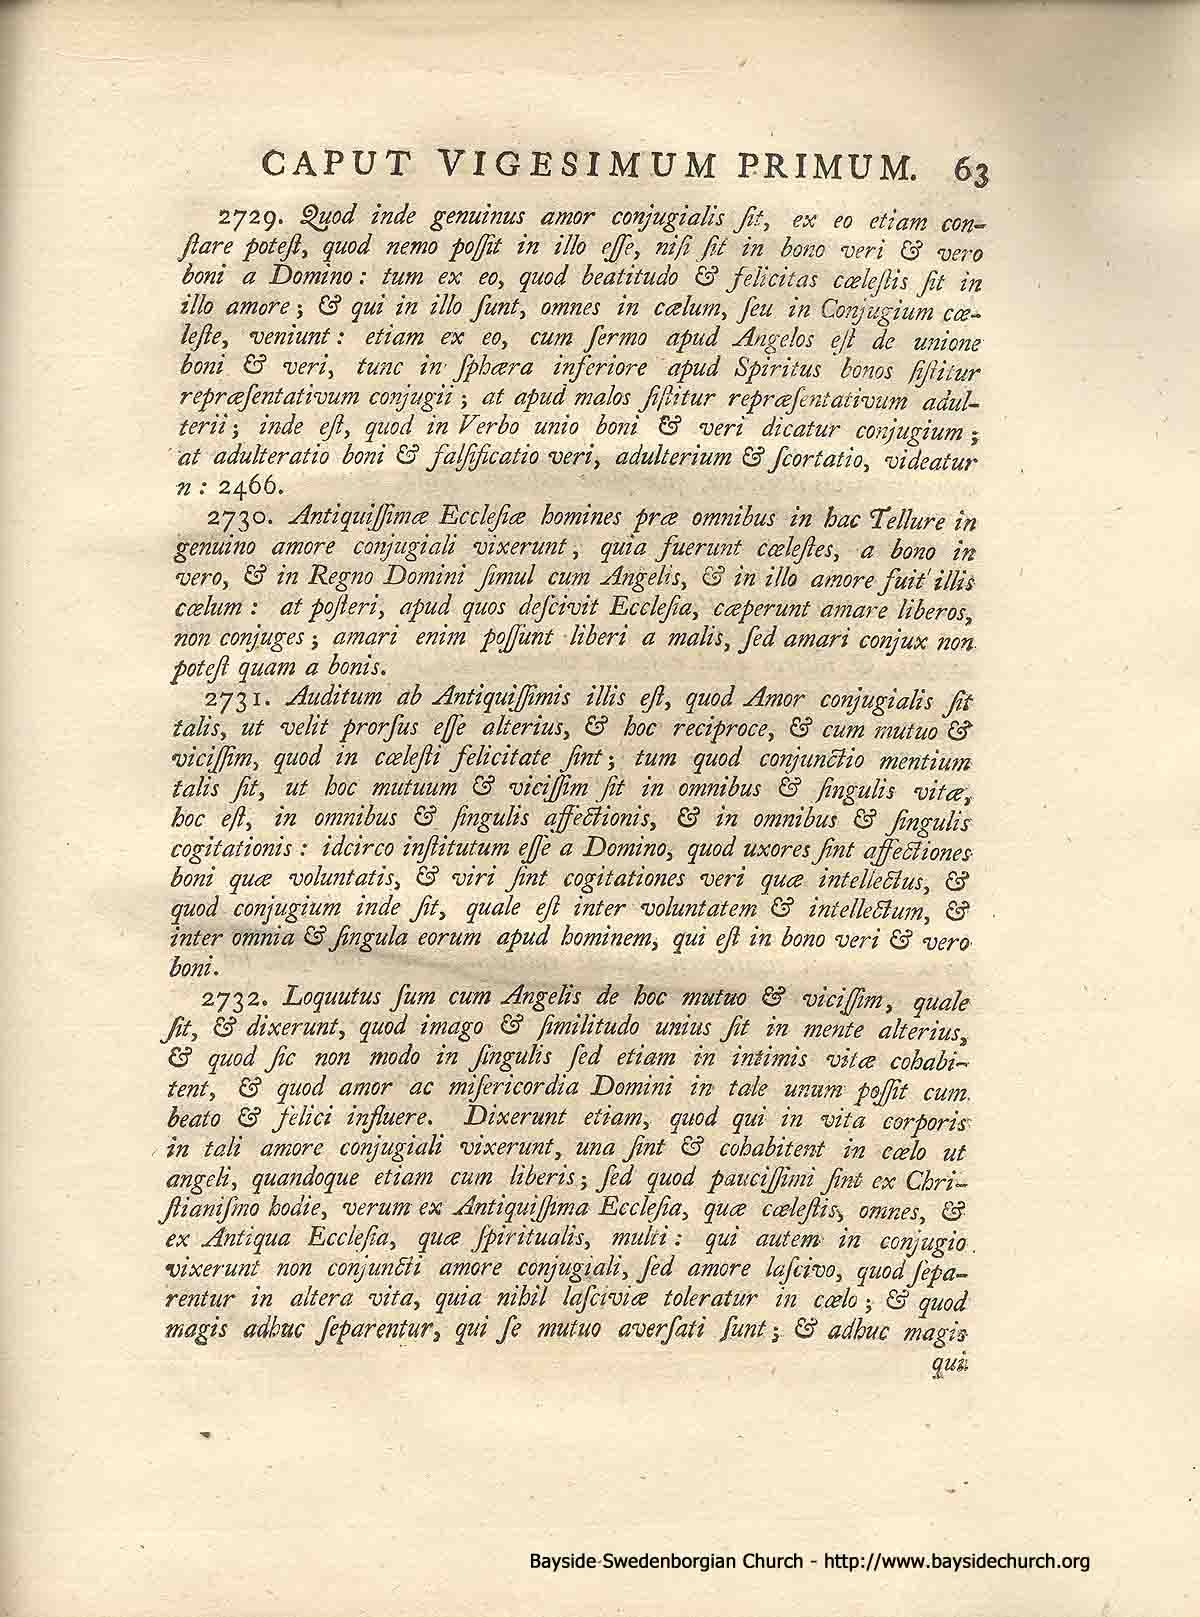 CAPUT VIGESIMUM PRIMUM. 63
2729. Quod inde genuinus amor conjugialis ſit, ex eo etiam con-
ſtare poteſt, quod nemo poſſit in illo eſſe, niſi ſit in bono veri & vero
boni a Domino: tum ex eo, quod beatitudo & felicitas cœleſtis ſit in
illo amore; & qui in illo ſunt, omnes in cœlum, ſeu in Conjugium cœ-
leſte, veniunt: etiam ex eo, cum ſermo apud Angelos eſt de unione
boni & veri, tunc in ſphæra inferiore apud Spiritus bonos ſiſtitur
repræſentativum conjugii; at apud malos ſiſtitur repræſentativum adul-
terii; inde eſt, quod in Verbo unio boni & veri dicatur conjugium;
at adulteratio boni & falſificatio veri, adulterium & ſcortatio, videatur
n: 2466.
2730. Antiquiſſimæ Eccleſiæ homines præ omnibus in hac Tellure in
genuino amore conjugiali vixerunt, quia fuerunt cœleſtes, a bono in
vero, & in Regno Domini ſimul cum Angelis, & in illo amore fuit illis
cœlum: at poſteri, apud quos deſcivit Eccleſia, cæperunt amare liberos,
non conjuges; amari enim poſſunt liberi a malis, ſed amari conjux non
poteſt quam a bonis.
2731. Auditum ab Antiquiſſimis illis eſt, quod Amor conjugialis ſit
talis, ut velit prorſus eſſe alterius, & hoc reciproce, & cum mutuo &
viciſſim, quod in cœleſti felicitate ſint; tum quod conjunctio mentium
talis ſit, ut hoc mutuum & viciſſim ſit in omnibus & ſingulis vitæ,
hoc eſt, in omnibus & ſingulis affectionis, & in omnibus & ſingulis
cogitationis: idcirco inſtitutum eſſe a Domino, quod uxores ſint affectiones
boni quæ voluntatis, & viri ſint cogitationes veri quæ intellectus, &
quod conjugium inde ſit, quale eſt inter voluntatem & intellectum, &
inter omnia & ſingula eorum apud hominem, qui eſt in bono veri & vero
boni.
2732. Loquutus ſum cum Angelis de hoc mutuo & viciſſim, quale
ſit, & dixerunt, quod imago & ſimilitudo unius ſit in mente alterius,
& quod ſic non modo in ſingulis ſed etiam in intimis vitæ cohabi-
tent, & quod amor ac miſericordia Domini in tale unum poſſit cum
beato & felici influere. Dixerunt etiam, quod qui in vita corporis
in tali amore conjugiali vixerunt, una ſint & cohabitent in cœlo ut
angeli, quandoque etiam cum liberis; ſed quod pauciſſimi ſint ex Chri-
ſtianiſmo hodie, verum ex Antiquiſſima Eccleſia, quæ cœleſtis, omnes, &
ex Antiqua Eccleſia, quæ ſpiritualis, multi: qui autem in conjugio
vixerunt non conjuncti amore conjugiali, ſed amore laſcivo, quod ſepa-
rentur in altera vita, quia nihil laſciviæ toleratur in cœlo; & quod
magis adhuc ſeparentur, qui ſe mutuo averſati ſunt; & adhuc magis
qui
Bayside Swedenborgian Church - http://www.baysidechurch.org